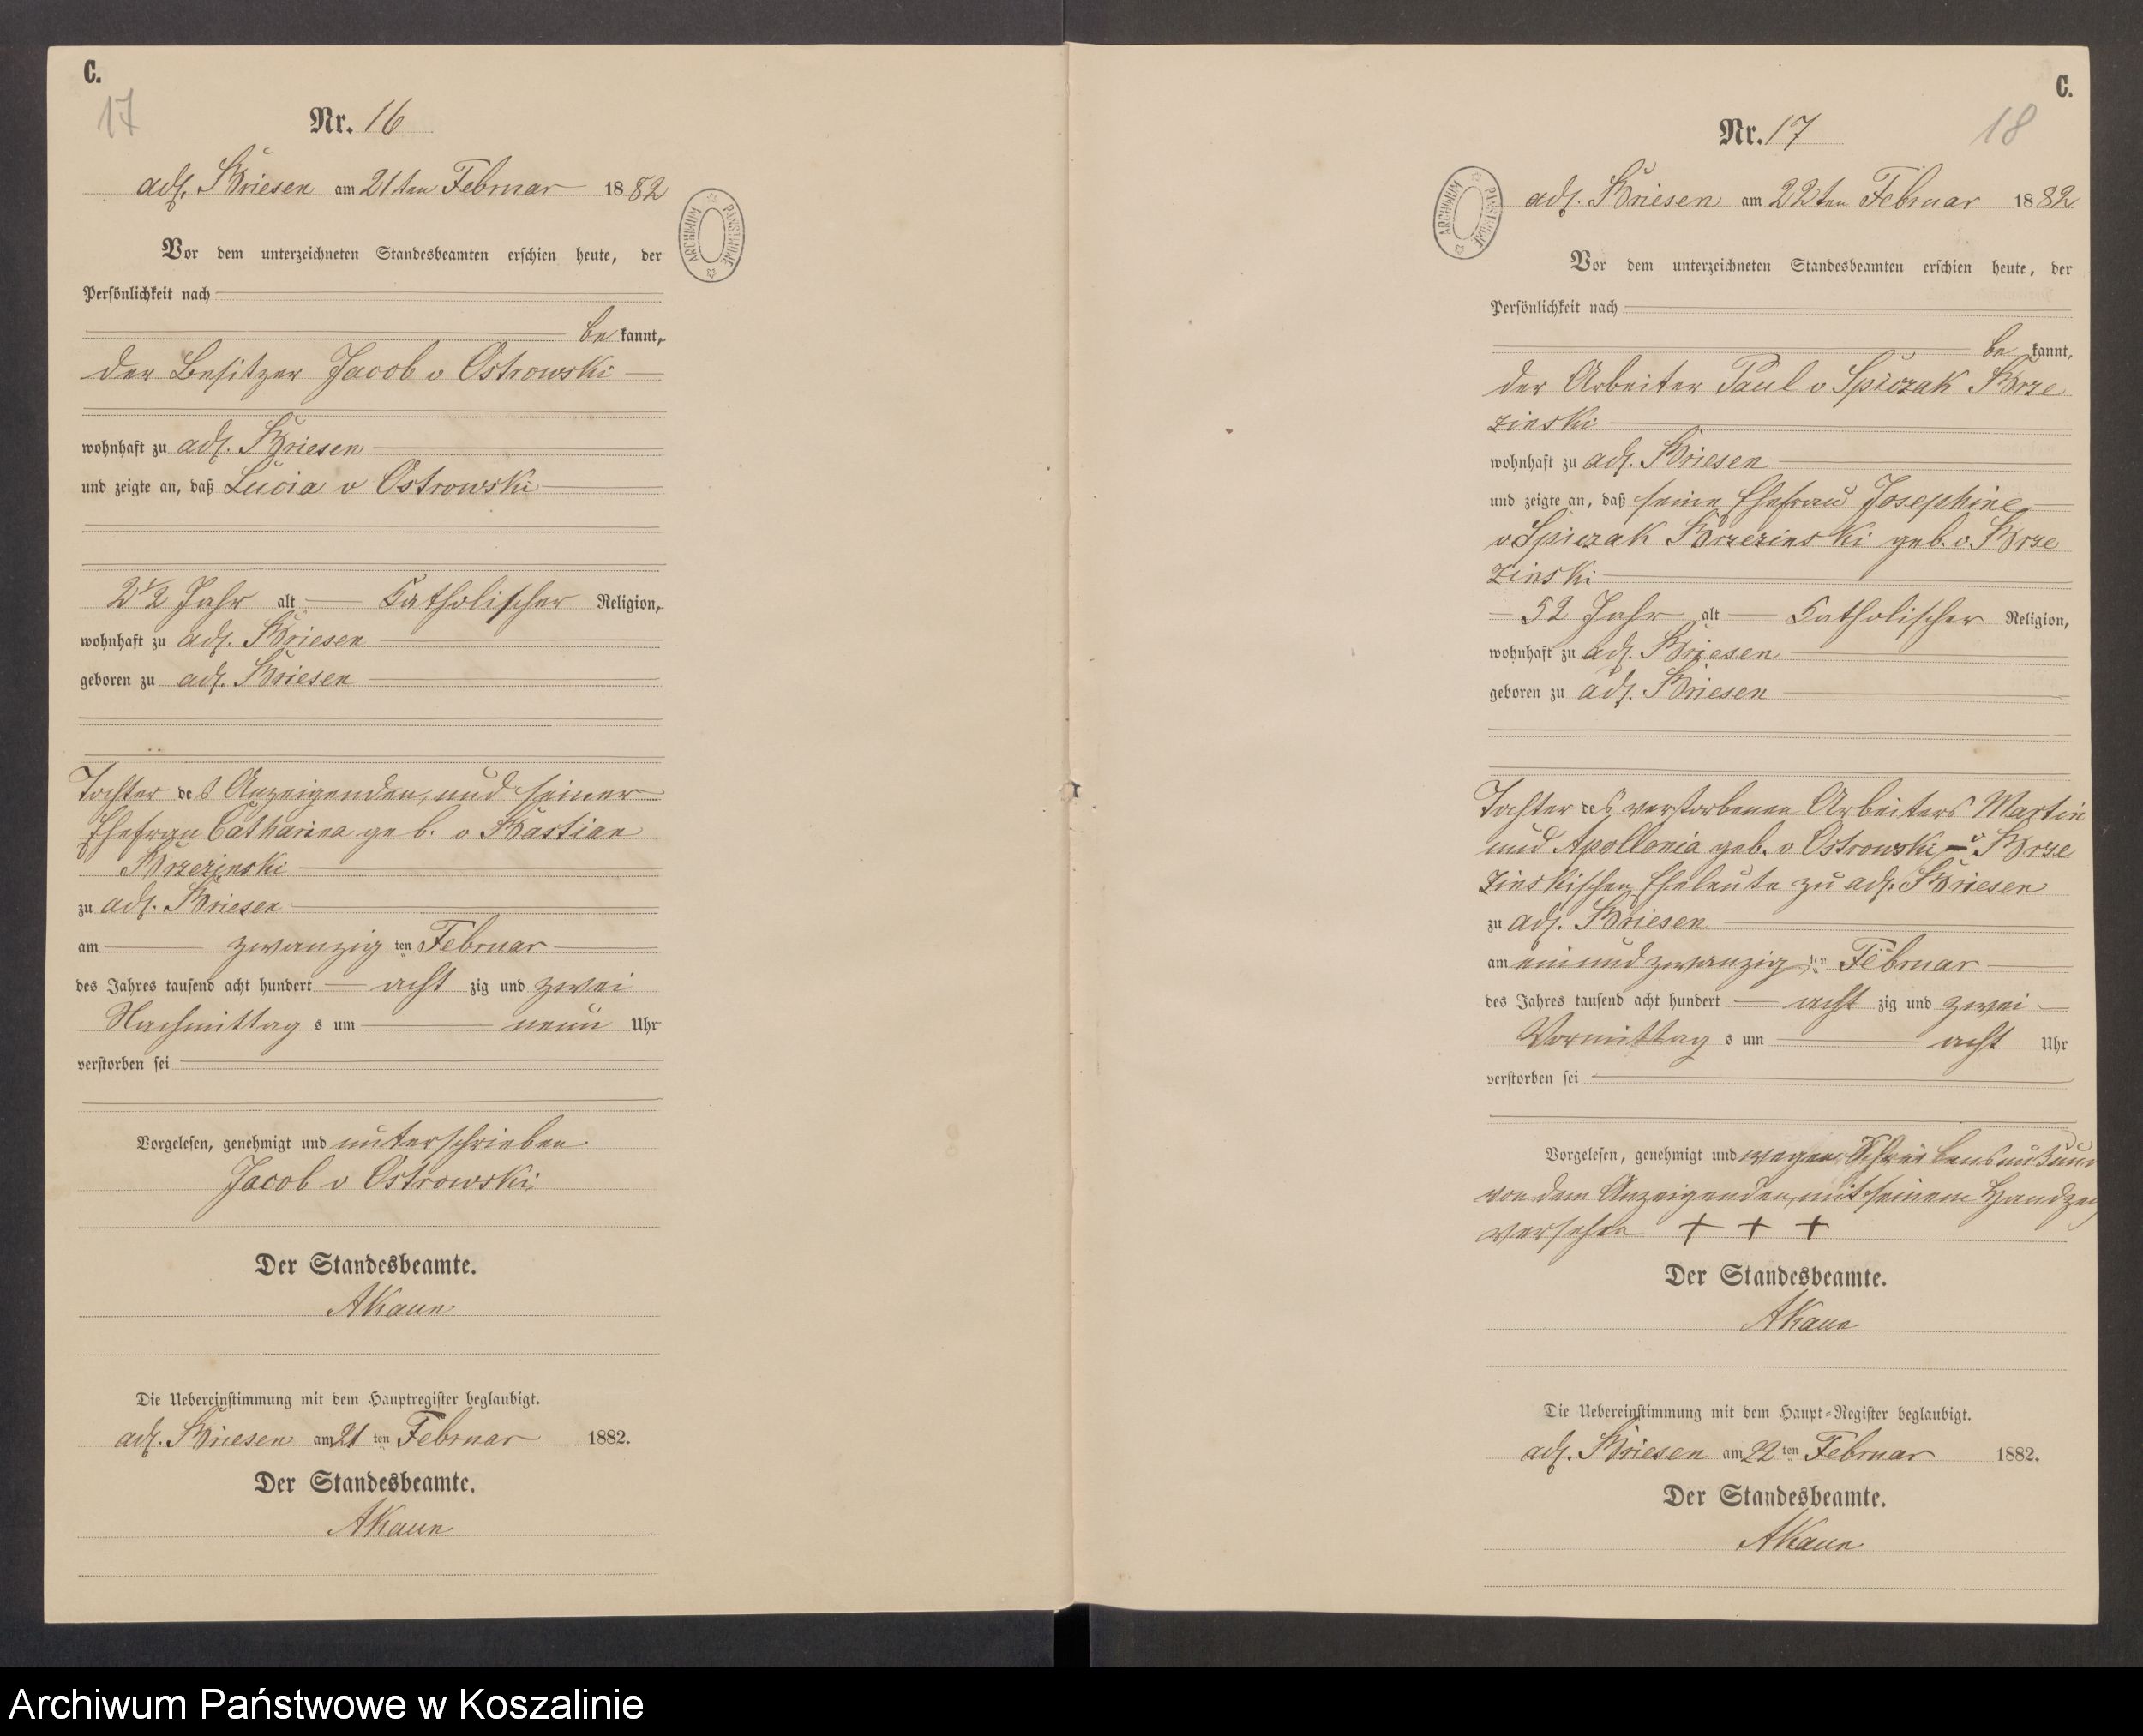 C.
17
Nr. 16
adl. Briesen am 21ten Februar 1882
Vor dem unterzeichneten Standesbeamten erschien heute, der
Persönlichkeit nach
be kannt,
der Besitzer Jacob v Ostrowski
wohnhaft zu adl. Briesen
und zeigte an, daß Lucia v Ostrowski
2 1/2 Jahr alt Katholischer Religion,
wohnhaft zu adl. Briesen
geboren zu adl. Briesen
Tochter des Anzeigenden, und seiner
Ehefrau Catharina geb. v Bastian
Brzezinski
zu adl. Briesen
am zwanzig ten Februar
des Jahres tausend acht hundert acht zig und zwei
Nachmittag s um neun Uhr
verstorben sei
Vorgelesen, genehmigt und unterschrieben
Jacob v Ostrowski
Der Standesbeamte.
AKaun
Die Uebereinstimmung mit dem Hauptregister beglaubigt.
adl. Briesen am 21 ten Februar 1882.
Der Standesbeamte.
AKaun
ARCHIWUM PAŃSTWOWE
C.
18
Nr. 17
adl. Briesen am 22ten Februar 1882
Vor dem unterzeichneten Standesbeamten erschien heute, der
Persönlichkeit nach
be kannt,
der Arbeiter Paul v Spiczak Brze
zinski
wohnhaft zu adl. Briesen
und zeigte an, daß seine Ehefrau Josephine
v Spiczak Brzezinski geb. v. Brze
zinski
52 Jahr alt Katholischer Religion,
wohnhaft zu adl. Briesen
geboren zu adl. Briesen
Tochter des verstorbenen Arbeiters Martin
und Apollonia geb. v Ostrowski - v Brze
zinskischen Eheleute zu adl. Briesen
zu adl. Briesen
am ein und zwanzig ten Februar
des Jahres tausend acht hundert acht zig und zwei
Vormittag s um acht Uhr
verstorben sei
Vorgelesen, genehmigt und wegen Schreibensunkunde
von dem Anzeigenden, mit seinem Handzei
versehen + + +
Der Standesbeamte.
AKaun
Die Uebereinstimmung mit dem Haupt-Register beglaubigt.
adl. Briesen am 22 ten Februar 1882.
Der Standesbeamte.
AKaun
ARCHIWUM PAŃSTWOWE
Archiwum Państwowe w Koszalinie